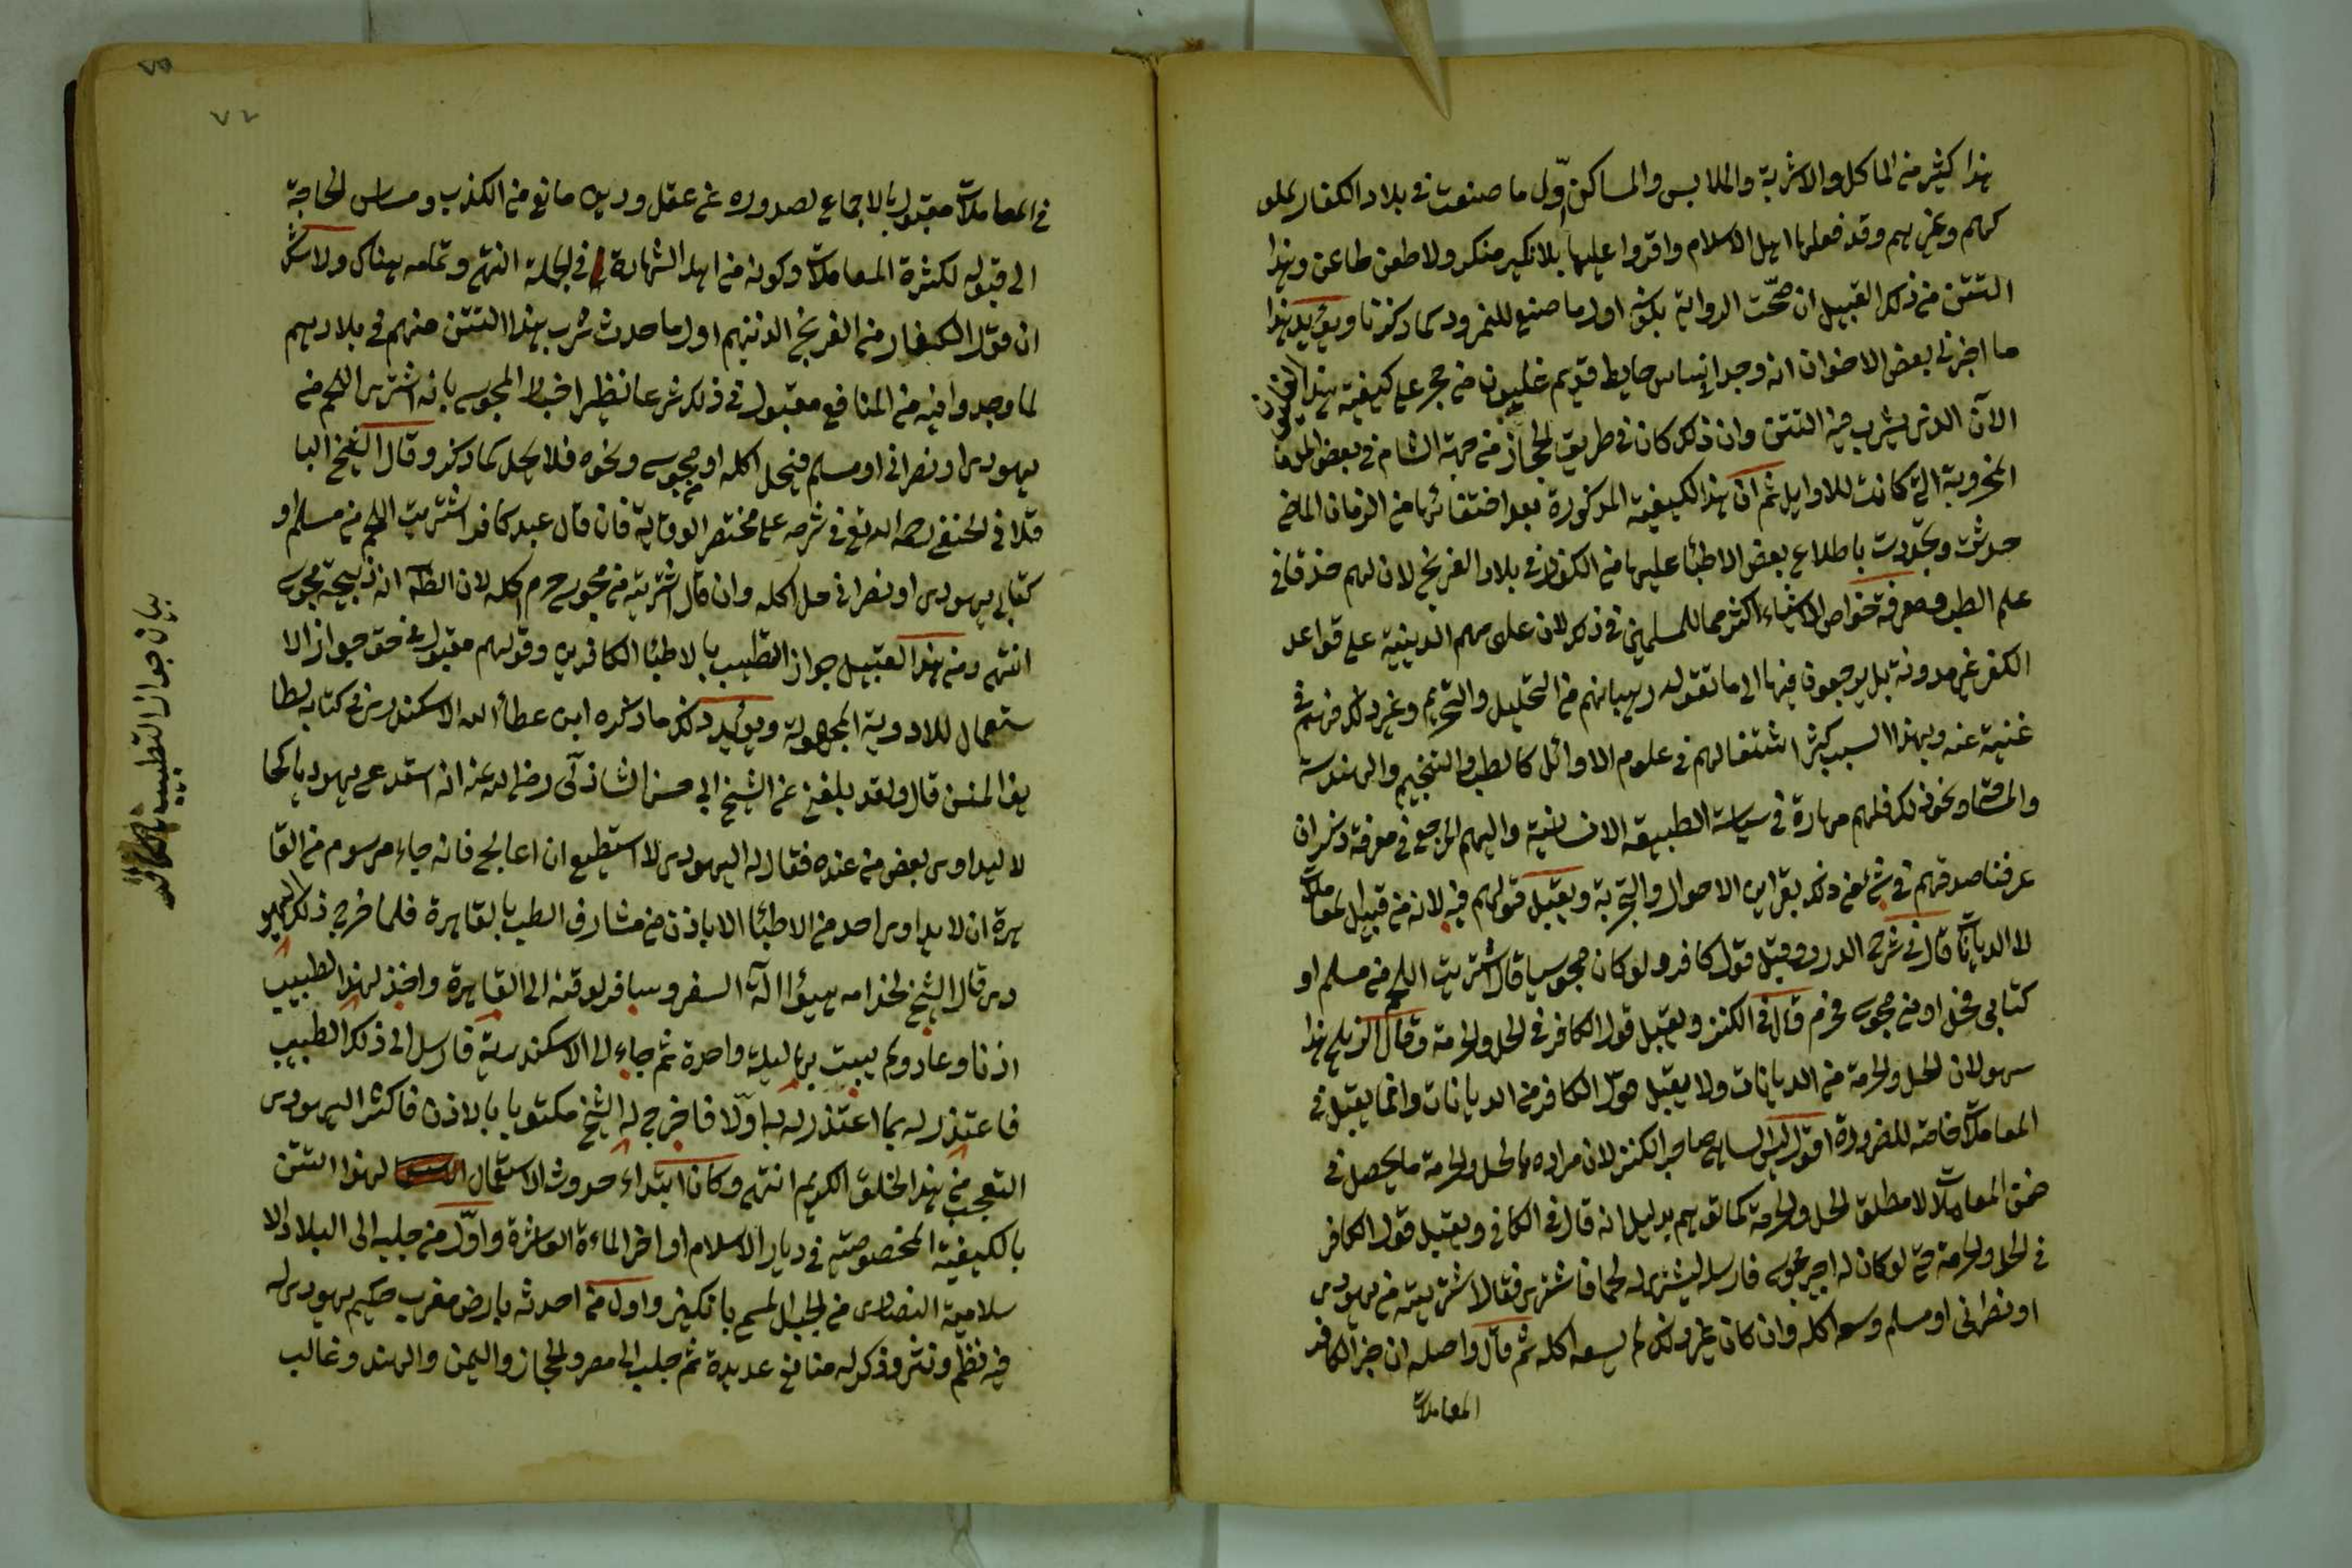 هذا كثير من المآكل والاشربة والملابس والمساكن اوّل ما صنعت في بلاد الكفار لملو
كهم وغيرهم وقد فعلها اهل الاسلام واقروا عليها بلا نكير منكر ولا طعن طاعن وهذا
التتن من ذلك القبيل ان صحّت الرواية بكونه اول ما صنع للنمرود كما ذكرنا ويؤيد هذا
ما اخبرني بعض الاخوان انه وجد اساس حايط قديم غليون من حجر على كيفية هذا الغليون
الآن الذي يشرب فيه التتن وان ذلك كان في طريق الحجاز من جهة الشام في بعض
المخروبة التي كانت للاوايل ثم ان هذا الكيفية المذكورة بعد اختفائها من الزمان الماضي
حدثت وتجددت باطلاع بعض الاطبا عليها من الكفار في بلاد الفرنج لان لهم حذقا في
علم الطب ومعرفة خواص الاشياء اكثر مما للمسلمين في ذلك لان علومهم الدينية على قواعد
الكفر غير مدونة بل يرجعون فيها الى ما تقوله رهبانهم من التحليل والتحريم وغير ذلك فهم في
غنية عنه وبهذا السبب كثر اشتغالهم في علوم الاوائل كالطب والتنجيم والهندسة
ونحو ذلك فلهم مهارة في سياسة الطبيعة الانسانية واليهم المرجع في معرفة ذلك ان
عرفنا صدقهم في شئ من ذلك بقراين الاحوال والتجربة ويقبل قولهم فيه لانه من قبيل المعاملات
لا الديانات قال في شرح الدرر وقبل قول كافر ولو كان مجوسيا قال اشتريت اللحم من مسلم او
كتابي فحل او من مجوسي فحرم قال في الكنز ويقبل قول الكافر في الحل والحرمة وقال الزيلعي هذا
سهو لان الحل والحرمة من الديانات ولا يقبل قول الكافر من الديانات وانما يقبل في
المعاملات خاصة للضرورة اقول ليس الساهي صاحب الكنز لان مراده بالحل والحرمة ما يحصل في
ضمن المعاملات لا مطلق الحل والحرمة كما توهم بدليل انه قال في الكافي ويقبل قول الكافر
في الحل والحرمة حتى لو كان له اجير مجوسي فارسله ليشتري له لحما فاشترى فقال اشتريته من يهودي
او نصراني او مسلم وسعه اكله وان كان غير ذلك لم يسعه اكله ثم قال واصله ان خبر الكافر
المعاملات
٧٥
٧٤
في المعاملات مقبول بالاجماع لصدوره عن عقل ودين مانع من الكذب ومساس الحاجة
الى قبوله لكثرة المعاملات وكونه من اهل الشهادة في الجملة انتهى وتمامه هناك ولا شك
ان قول الكفار من الفرنج الذينهم اول ما حدث شرب هذا التتن منهم في بلادهم
لما وجدوا فيه من المنافع مقبول في ذلك شرعا نظير اخبار المجوسي بانه اشترى اللحم من
يهودي او نصراني او مسلم فيحل اكله او مجوسي ونحوه فلا يحل كما ذكر وقال الشيخ البا
قلاني الحنفي رحمه الله تع في شرحه على مختصر الوقاية فان قال عبد كافر اشتريت اللحم من مسلم او
كتابي يهودي او نصراني حل اكله وان قال اشتريته من مجوسي حرم اكله لان الظاهر انه ذبيحة مجوسي
انتهى ومن هذا القبيل جواز التطبيب بالاطبا الكافرين وقولهم مقبول في حق جواز الا
ستعمال للادوية المجهولة ويؤيد ذلك ما ذكره ابن عطاء الله الاسكندري في كتابه لطا
يف المنن قال ولقد بلغني عن الشيخ ابي حسن الشاذلي رضي الله عنه انه استدعى يهوديا كحا
لا ليداوي بعض من عنده فقال له اليهودي لا استطيع ان اعالج فانه جاء مرسوم من القا
هرة ان لا يداوي احد من الاطبا الا باذن من مشارف الطب بالقاهرة فلما خرج ذلك اليهو
دي قال الشيخ لخدامه هيؤا آلة السفر وسافر لوقته الى القاهرة واخذ لهذا الطبيب
اذنا وعاد ولم يبت بها ليلة واحدة ثم جاء الى الاسكندرية فارسل الى ذلك الطبيب
فاعتذر له بما اعتذر له به اوّلا فاخرج له الشيخ مكتوبا بالاذن فاكثر اليهودي
التعجب من هذا الخلق الكريم انتهى وكان ابتداء حدوث الاستعمال لهذا التتن
بالكيفية المخصوصة في ديار الاسلام اواخر الماءة العاشرة واوّل من جلبه الى البلاد الا
سلامية النصارى من الجيل المسمى بانكليز واول من احدثه بارض مغرب حكيم يهودي له
فيه نظم ونثر وذكر له منافع عديدة ثم جلب الى مصر والحجاز واليمن والهند وغالب
بيان جواز التطبيب بالكافر